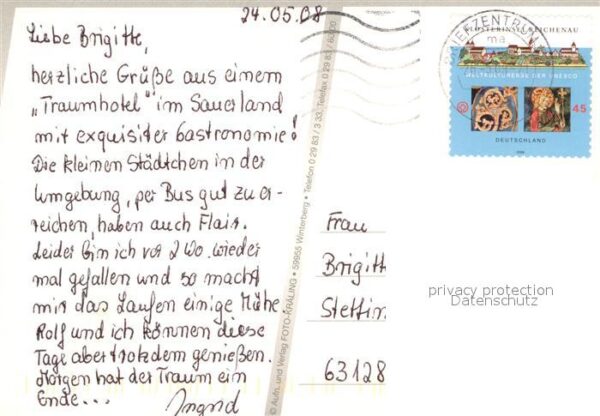 24.05.08
Liebe Brigitte,
herzliche Grüße aus einem
„Traumhotel" im Sauerland
mit exquisiter Gastronomie!
Die kleinen Städtchen in der
Umgebung, per Bus gut zu er-
reichen, haben auch Flair.
Leider bin ich vor 2 Wo. wieder
mal gefallen und so macht
mir das Laufen einige Mühe.
Rolf und ich können diese
Tage aber trotzdem genießen.
Morgen hat der Traum ein
Ende...
Ingrid
© Aufn. und Verlag FOTO-KRÄLING • 59955 Winterberg • Telefon 0 29 83 / 3 33, Telefax 0 29 83 /
BRIEFZENTRUM
KLOSTERINSEL REICHENAU
WELTKULTURERBE DER UNESCO
45
DEUTSCHLAND
Frau
Brigitt
Stettin
63128
privacy protection
Datenschutz